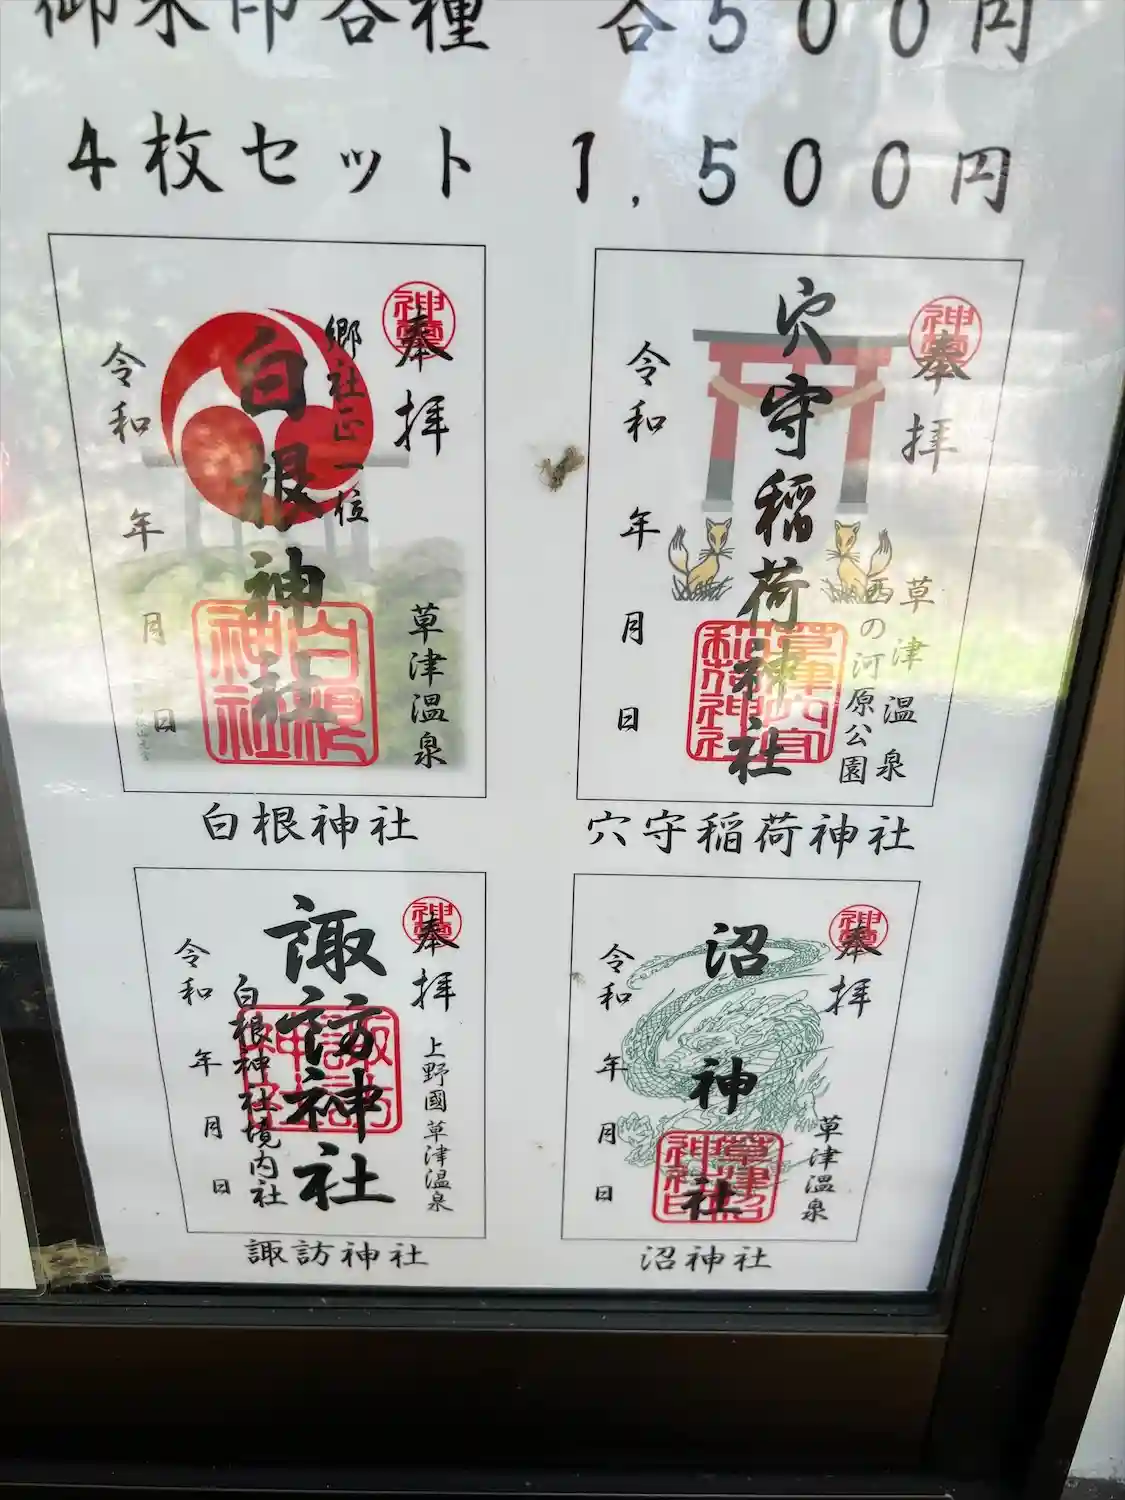 御朱印各種 各500円
4枚セット 1,500円
奉拝
郷社正一位
白根神社
草津温泉
令和 年 月 日
白根神社
奉拝
穴守稲荷神社
草津温泉
西の河原公園
令和 年 月 日
穴守稲荷神社
奉拝
上野國草津温泉
諏訪神社
白根神社境内社
令和 年 月 日
諏訪神社
奉拝
沼神社
草津温泉
令和 年 月 日
沼神社